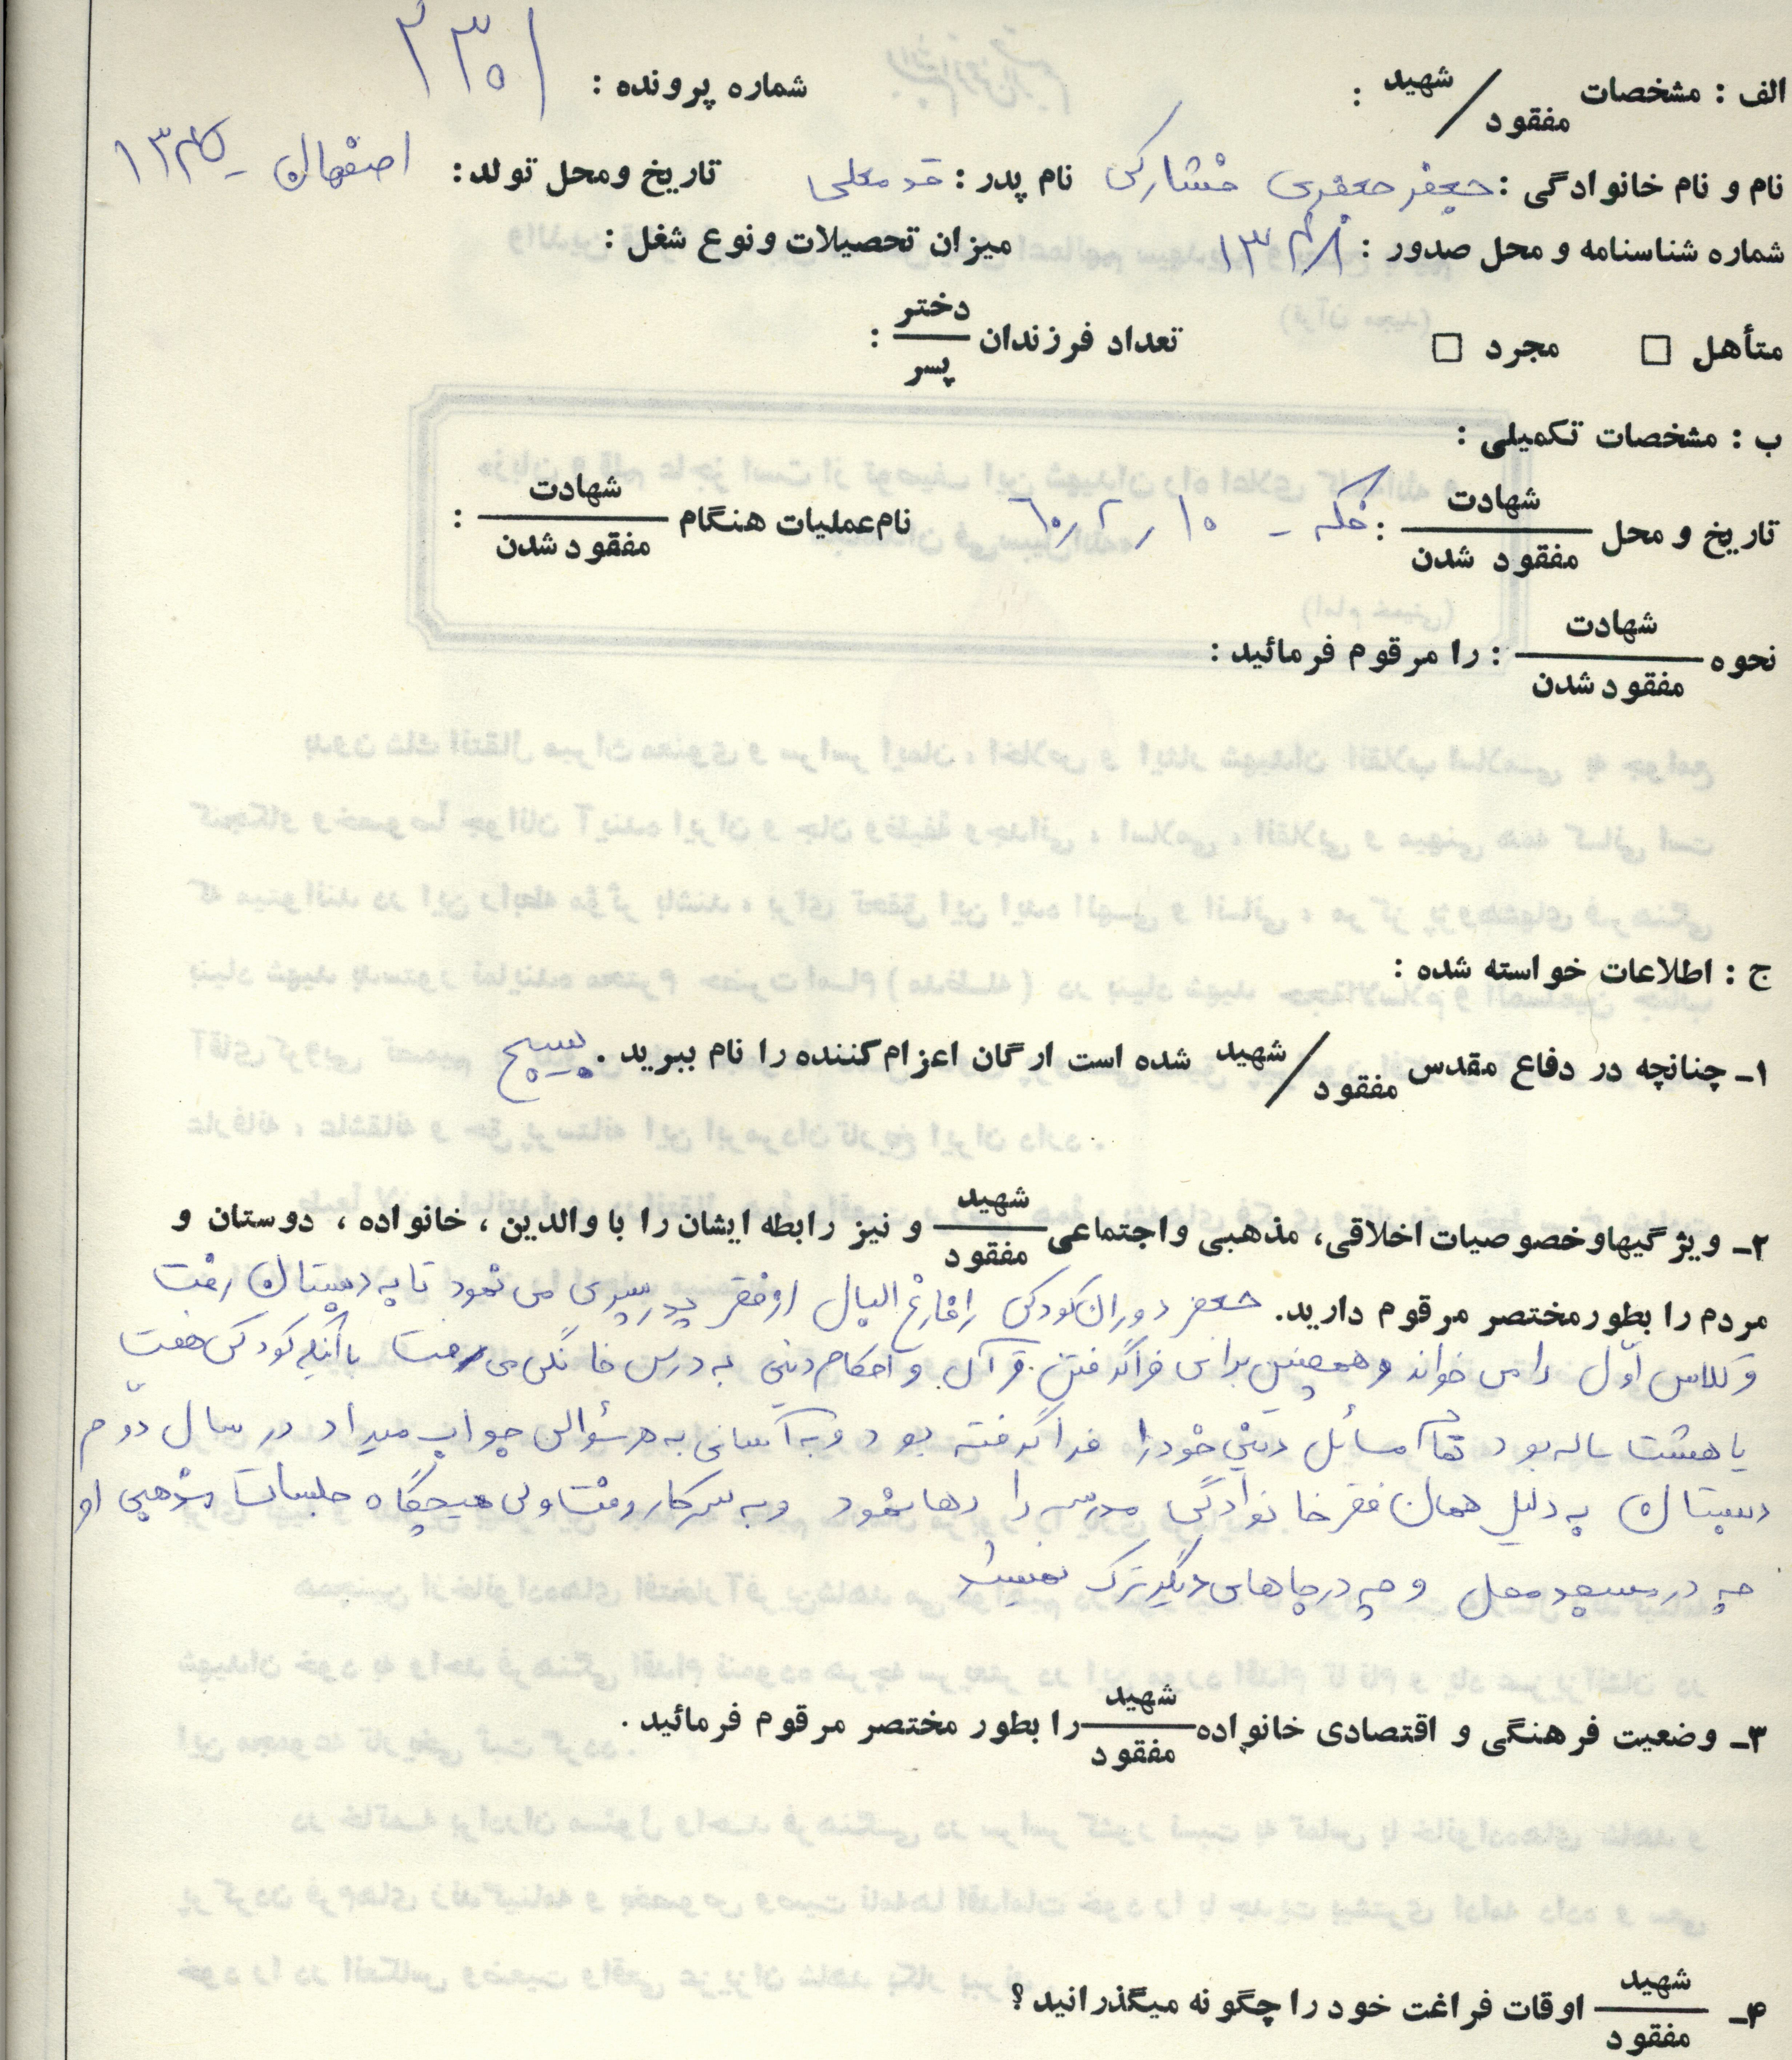 الف : مشخصات شهید / مفقود :
شماره پرونده :
نام و نام خانوادگی : جعفر جعفری خشارکی نام پدر : تاریخ ومحل تولد : اصفهان -
شماره شناسنامه و محل صدور : میزان تحصیلات و نوع شغل :
متأهل □ مجرد □ تعداد فرزندان دختر / پسر :
ب : مشخصات تکمیلی :
تاریخ و محل شهادت / مفقود شدن : - ۱۰ / ۲ / ۶۰ نام عملیات هنگام شهادت / مفقود شدن :
نحوه شهادت / مفقود شدن : را مرقوم فرمائید :
ج : اطلاعات خواسته شده :
۱- چنانچه در دفاع مقدس شهید / مفقود شده است ارگان اعزام کننده را نام ببرید . بسیج
۲- ویژگیها و خصوصیات اخلاقی، مذهبی و اجتماعی شهید / مفقود و نیز رابطه ایشان را با والدین ، خانواده ، دوستان و
مردم را بطور مختصر مرقوم دارید. جعفر دوران کودکی را فارغ البال از فقر پدر سپری می نمود تا به دبستان رفت
و کلاس اوّل را می خواند و همچنین برای فراگرفتن قرآن و احکام دینی به درس خانگی می رفت با آنکه کودکی هفت
یا هشت ساله بود تمام مسائل دینی خود را فرا گرفته بود و به آسانی به هر سؤالی جواب میداد در سال دوّم
دبستان به دلیل همان فقر خانوادگی مدرسه را رها نمود و به سر کار رفت ولی هیچگاه جلسات مذهبی او
چه در مسجد محل و چه در جاهای دیگر ترک نمیشد
۳- وضعیت فرهنگی و اقتصادی خانواده شهید / مفقود را بطور مختصر مرقوم فرمائید .
۴- شهید / مفقود اوقات فراغت خود را چگونه میگذرانید ؟